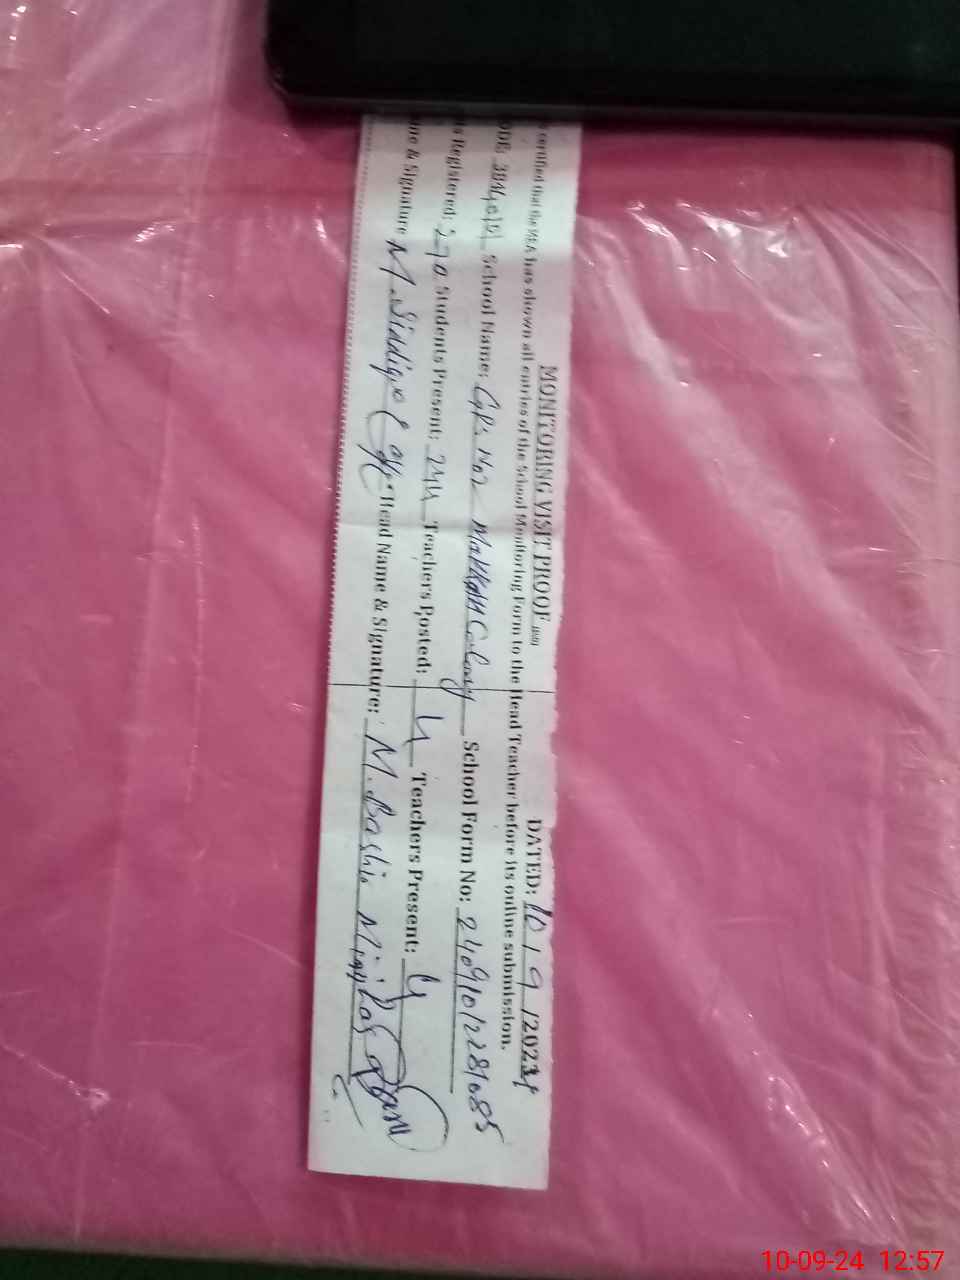 MONITORING VISIT PROOF
DATED: 10/9/2024
certified that the MEA has shown all entries of the School Monitoring Form to the Head Teacher before its online submission.
School Name: GPS No2 Makkah Colony School Form No:
Registered: 270 Students Present: 244 Teachers Posted: 4 Teachers Present: 4
& Signature M. Siddique Head Name & Signature: M. Bashir
10-09-24 12:57